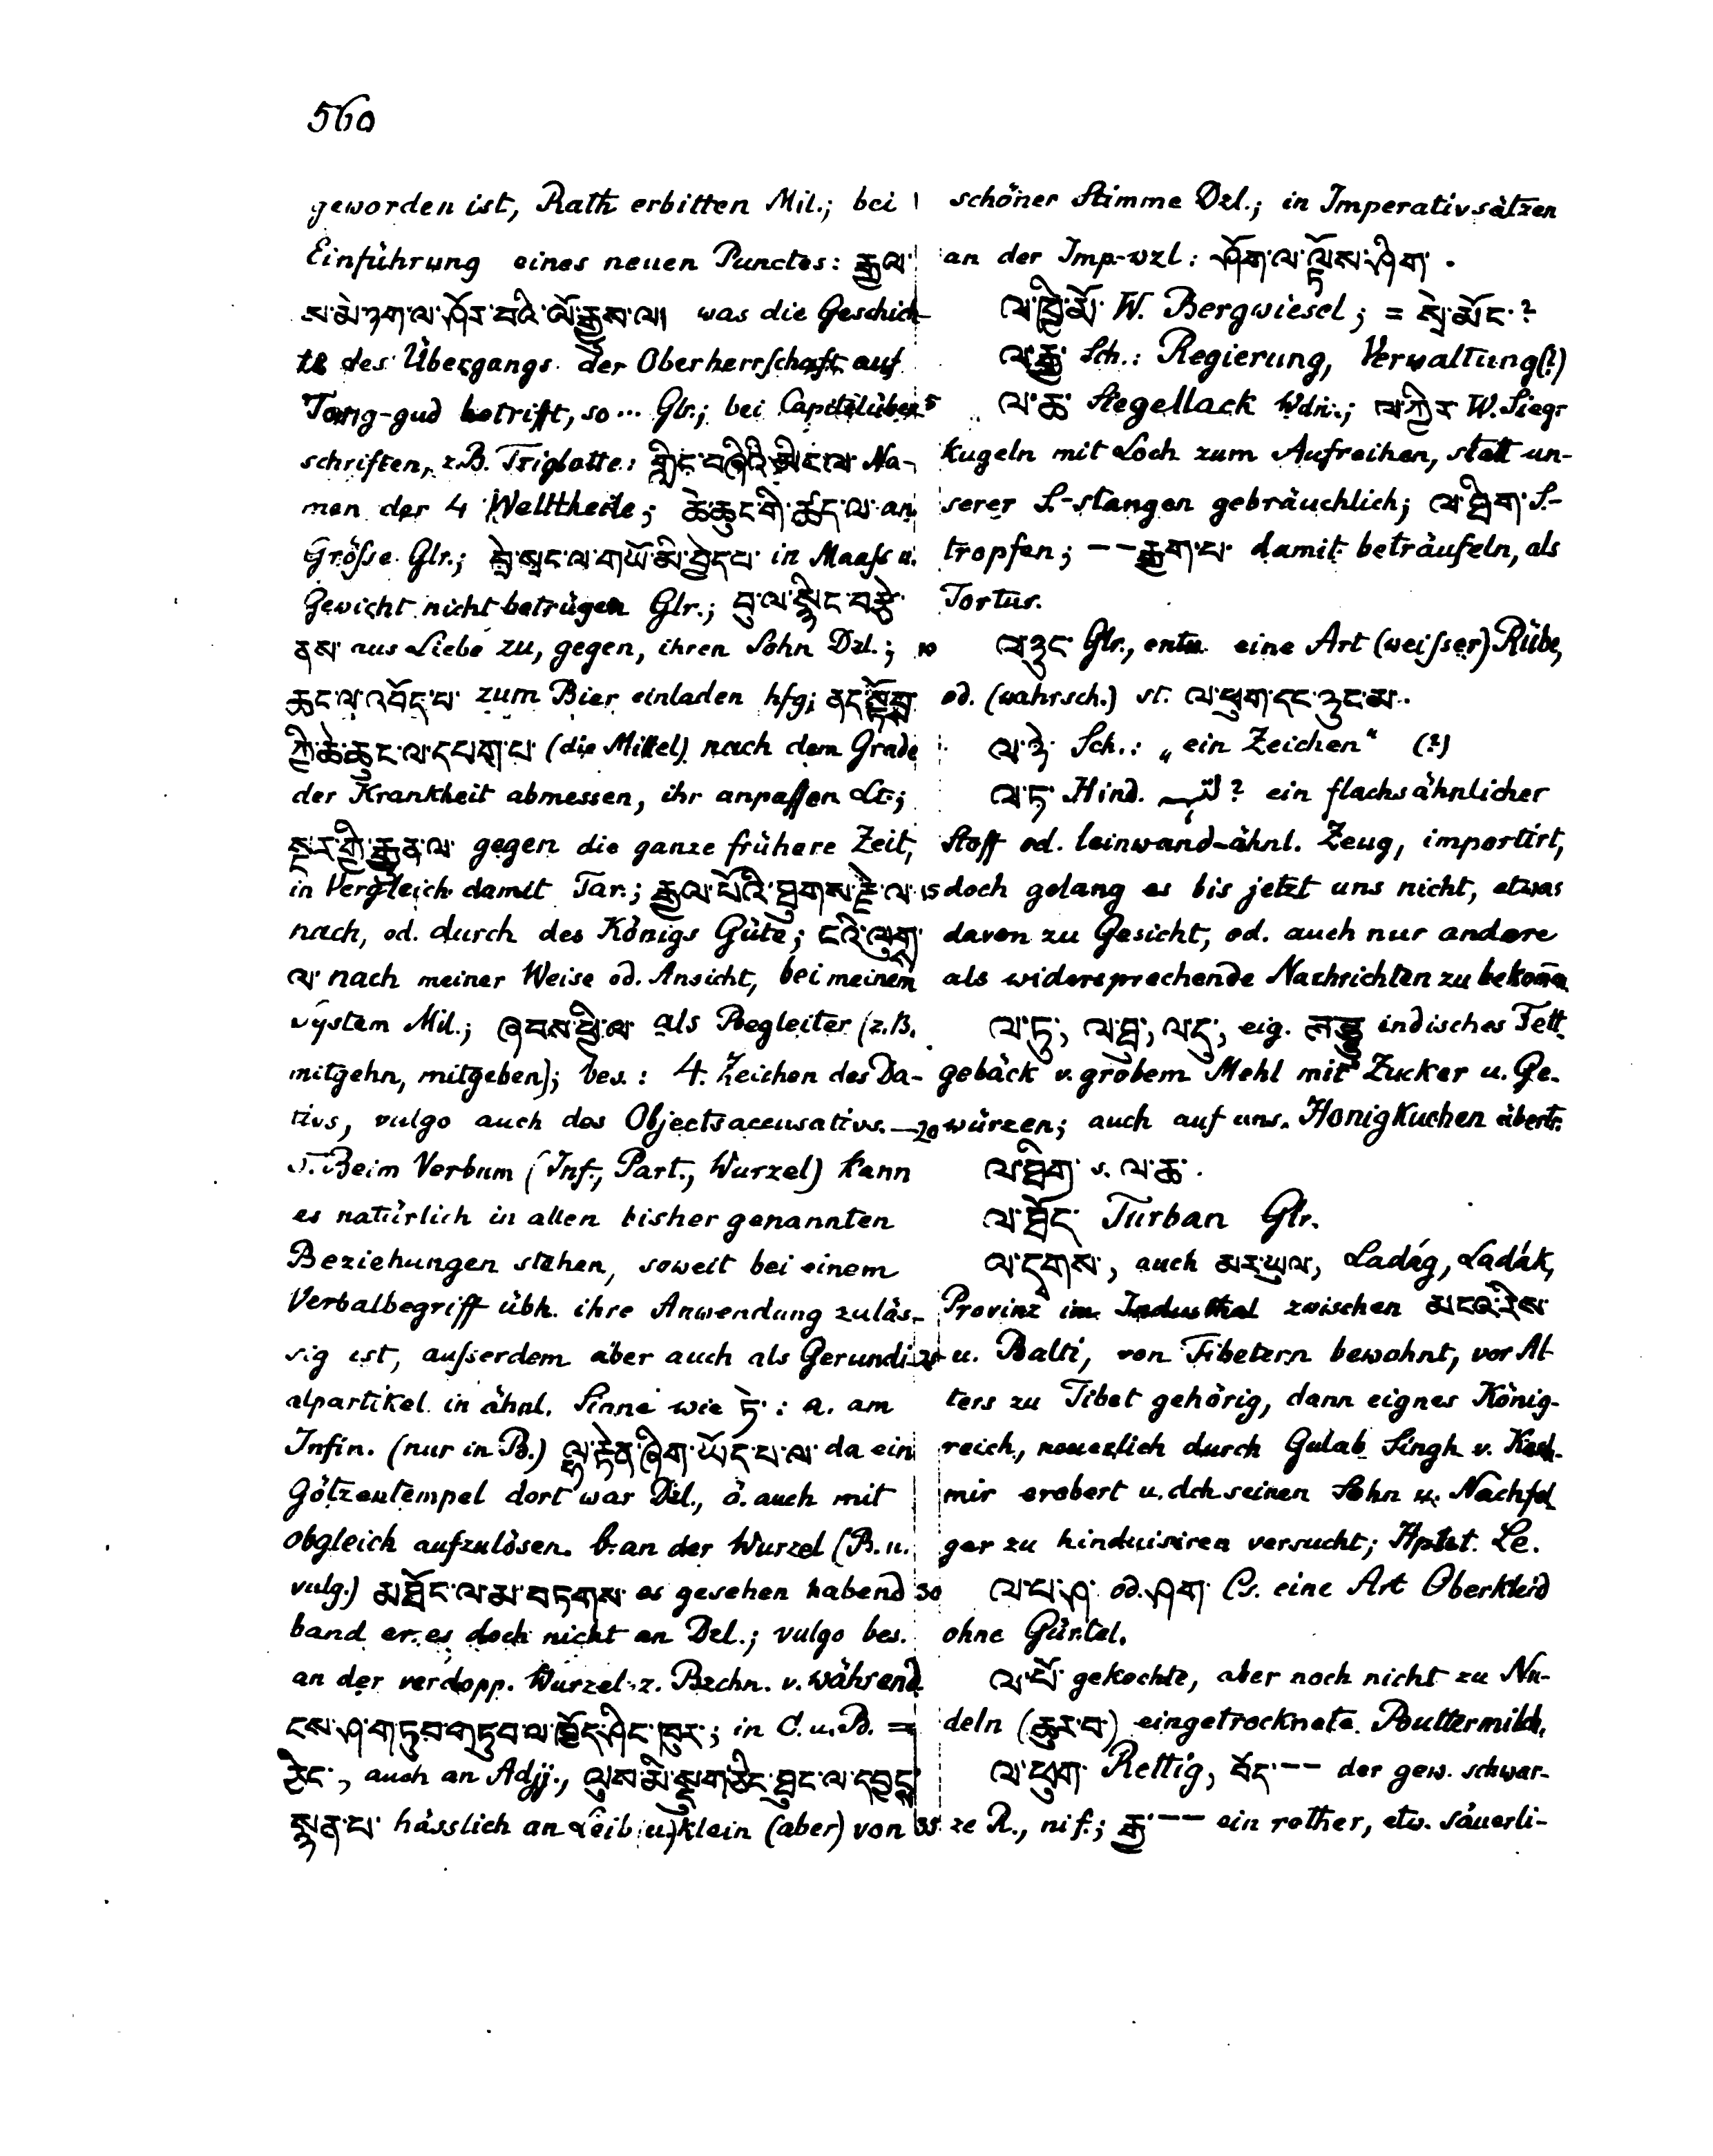 560
geworden ist, Rath erbitten Mil.; bei
Einführung eines neuen Punctes: རྒྱལ་
ས་མེ་ཉག་ལ་ཤོར་བའི་ལོ་རྒྱུས་ལ། was die Geschich-
te des Übergangs der Oberherrschaft auf
Tang-gud betrifft, so ... Glr.; bei Capitelüber-
schriften, z.B. Triglotte: གླིང་བཞིའི་མིང་ལ་ Na-
men der 4 Welttheile; ཆེ་ཆུང་གི་ཚོད་ལ་ an
Grösse Glr.; བྲེ་སྲང་ལ་གཡོ་མི་བྱེད་པ་ in Maass u.
Gewicht nicht betrügen Glr.; བུ་ལ་སྙིང་བརྩེ་
ནས་ aus Liebe zu, gegen, ihren Sohn Dzl.; 10
ཆང་ལ་འབོད་པ་ zum Bier einladen hfg; ནད་སྟོབས་
ཀྱི་ཆེ་ཆུང་ལ་དཔག་པ་ (die Mittel) nach dem Grade
der Krankheit abmessen, ihr anpassen Lt.;
སྔར་གྱི་རྒྱུན་ལ་ gegen die ganze frühere Zeit,
in Vergleich damit Tar.; རྒྱལ་པོའི་ཐུགས་རྗེ་ལ་ 15
nach, od. durch des Königs Güte; ངའི་ལུགས་
ལ་ nach meiner Weise od. Ansicht, bei meinem
System Mil.; ཞབས་ཕྱི་ལ་ als Begleiter (z.B.
mitgehn, mitgeben); bes.: 4. Zeichen des Da-
tivs, vulgo auch des Objectsaccusativs. — 20
5. Beim Verbum (Inf., Part., Wurzel) kann
es natürlich in allen bisher genannten
Beziehungen stehen, soweit bei einem
Verbalbegriff übh. ihre Anwendung zuläs-
sig ist, ausserdem aber auch als Gerundi- 25
alpartikel in ähnl. Sinne wie ཏེ་: a. am
Infin. (nur in B.) ལྷ་རྟེན་ཞིག་ཡོད་པ་ལ་ da ein
Götzentempel dort war Dzl., ö. auch mit
obgleich aufzulösen. b. an der Wurzel (B. u.
vulg.) མཐོང་ལ་མ་བཏགས་ es gesehen habend 30
band er es doch nicht an Dzl.; vulgo bes.
an der verdopp. Wurzel z. Bzchn. v. während
ངས་ཤ་གཏུབ་གཏུབ་ལ་ཁྱོད་ཤིང་ཁུར་; in C. u. B. =
ཅིང་, auch an Adjj., ལུས་མི་སྡུག་ཅིང་ཐུང་ལ་དབྱངས་
སྙན་པ་ hässlich an Leib u. klein (aber) von 35
schöner Stimme Dzl.; in Imperativsätzen
an der Imp.-wzl: ཤོག་ལ་ལྟོས་ཤིག་.
ལ་ཁྲི་མོ་ W. Bergwiesel; = སྲེ་མོང་?
ལ་རྒྱ་ Sch.: Regierung, Verwaltung (?)
ལ་ཆ་ Siegellack Wdn.; ལ་ཀྱིར་ W. Siegr
kugeln mit Loch zum Aufreihen, statt un-
serer S.-stangen gebräuchlich; ལ་ཐིག་ S.-
tropfen; -- རྒྱག་པ་ damit beträufeln, als
Tortur.
ལ་ཉུང་ Glr., entw. eine Art (weisser) Rübe,
od. (wahrsch.) st. ལ་ཕུག་དང་ཉུང་མ་.
ལ་ཉེ་ Sch.: „ein Zeichen“ (?)
ལ་ཏ་ Hind. ? ein flachsähnlicher
Stoff od. leinwand-ähnl. Zeug, importirt,
doch gelang es bis jetzt uns nicht, etwas
davon zu Gesicht, od. auch nur andere
als widersprechende Nachrichten zu bekom̄en
ལ་ཏུ་, ལ་ཐུ་, ལ་དུ་, eig. लड्डु indisches Fett-
gebäck v. grobem Mehl mit Zucker u. Ge-
würzen; auch auf uns. Honigkuchen übertr.
ལ་ཐིག་ s. ལ་ཆ་.
ལ་ཐོད་ Turban Glr.
ལ་དྭགས་, auch མར་ཡུལ་, Ladág, Ladák,
Provinz im Industhal zwischen མངའ་རིས་
u. Balti, von Tibetern bewohnt, vor Al-
ters zu Tibet gehörig, dann eignes König-
reich, neuerlich durch Gulab Singh v. Kash-
mir erobert u. dch seinen Sohn u. Nachfol
ger zu hinduisiren versucht; Hptst. Le.
ལ་པ་ཤ་ od. ཤག་ Cs. eine Art Oberkleid
ohne Gürtel.
ལ་པོ་ gekochte, aber noch nicht zu Nu-
deln (ཆུར་བ་) eingetrocknete Buttermilch.
ལ་ཕུག་ Rettig, བོད་-- der gew. schwar-
ze R., nif.; རྒྱ་-- ein rother, etw. säuerli-